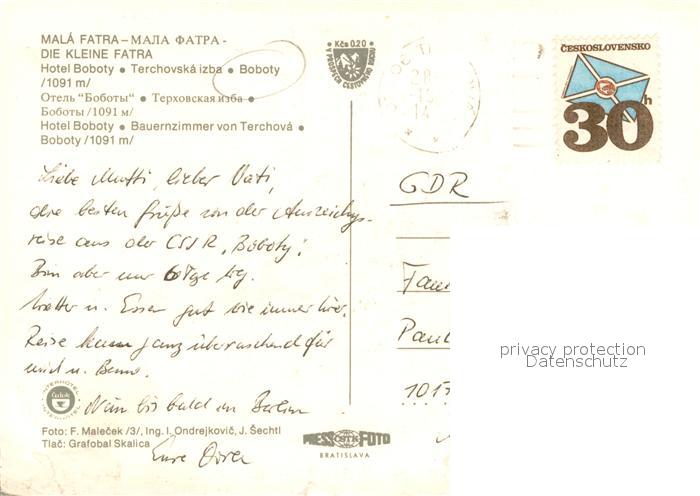 MALÁ FATRA – МАЛА ФАТРА -
DIE KLEINE FATRA
Hotel Boboty • Terchovská izba • Boboty
/1091 m/
Отель "Боботы" • Терховская изба •
Боботы /1091 м/
Hotel Boboty • Bauernzimmer von Terchová •
Boboty /1091 m/
Kčs 0.20
V PROSPECH CESTOVNÉHO RUCHU
28
14
ČESKOSLOVENSKO
30h
Liebe Mutti, lieber Vati,
die besten Grüße von der Auszeichngs-
reise aus der CSSR „Boboty".
Bin aber nur 6 Tge
Wetter u. Essen gut wie immer hier.
Reise kam ganz überraschend für
mich u.
Nun bis bald in Berlin
Eure
GDR
Fam
Paul
101
privacy protection
Datenschutz
INTERHOTEL
Foto: F. Maleček /3/, Ing. I. Ondrejkovič, J. Šechtl
Tlač: Grafobal Skalica
PRESS ČSTK FOTO
BRATISLAVA